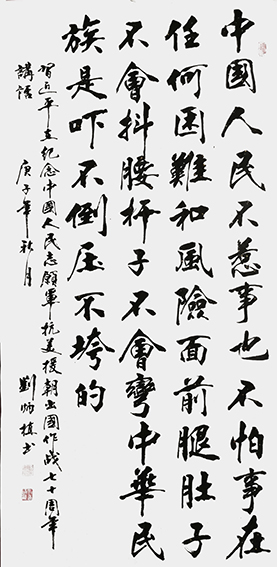 中國人民不惹事也不怕事在
任何困難和風險面前腿肚子
不會抖腰杆子不會彎中華民
族是吓不倒压不垮的
習近平在紀念中國人民志願軍抗美援朝出國作战七十周年
講話 庚子年秋月
劉炳植书